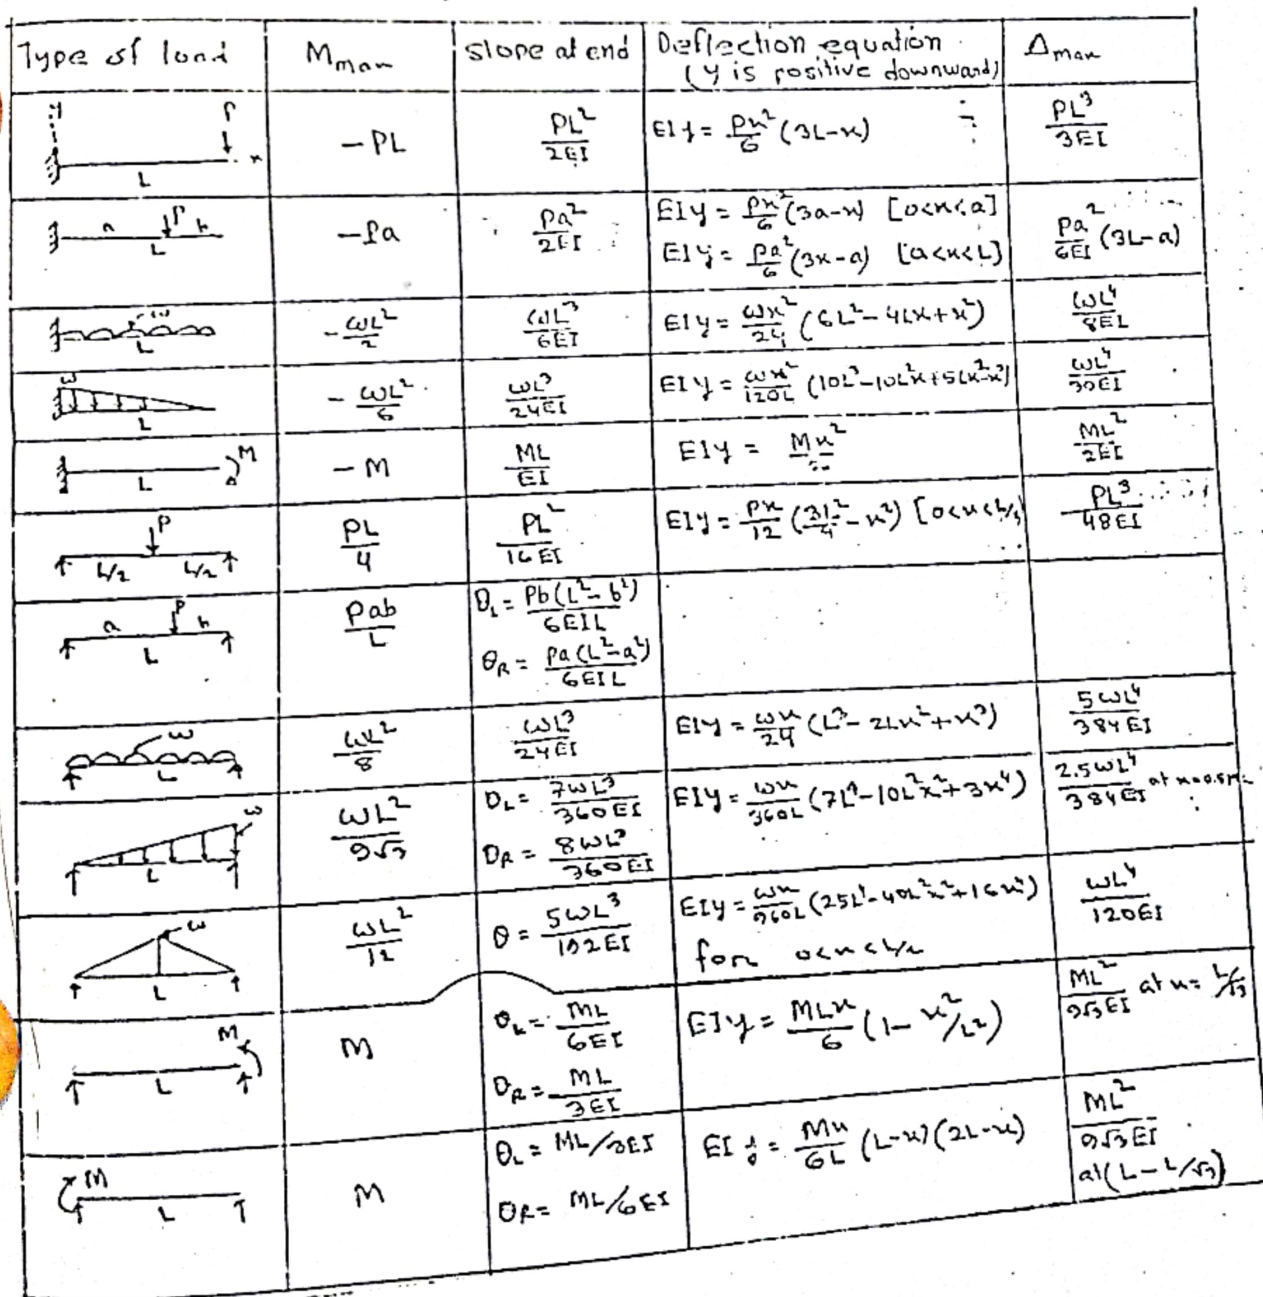 Type of load | M max | Slope at end | Deflection equation (y is positive downward) | Δ max
y P x L | -PL | PL²/2EI | EIy = Px²/6 (3L-x) | PL³/3EI
a P b L | -Pa | Pa²/2EI | EIy = Px²/6 (3a-x) [0<x<a] | Pa²/6EI (3L-a)
EIy = Pa²/6 (3x-a) [a<x<L]
w L | -ωL²/2 | ωL³/6EI | EIy = ωx²/24 (6L²-4Lx+x²) | ωL⁴/8EI
w L | -ωL²/6 | ωL³/24EI | EIy = ωx²/120L (10L³-10L²x+5Lx²-x³) | ωL⁴/30EI
M L | -M | ML/EI | EIy = Mx² | ML²/2EI
P L/2 L/2 | PL/4 | PL²/16EI | EIy = Px/12 (3L²/4 - x²) [0<x<L/2] | PL³/48EI
a P b L | Pab/L | θL = Pb(L²-b²)/6EIL
θR = Pa(L²-a²)/6EIL
w L | ωL²/8 | ωL³/24EI | EIy = ωx/24 (L³-2Lx²+x³) | 5ωL⁴/384EI
w L | ωL²/9√3 | θL = 7ωL³/360EI | EIy = ωx/360L (7L⁴-10L²x²+3x⁴) | 2.5ωL⁴/384EI at x=
θR = 8ωL³/360EI
w L | ωL²/12 | θ = 5ωL³/192EI | EIy = ωx/960L (25L⁴-40L²x²+16x⁴) | ωL⁴/120EI
for 0<x<L/2
M L | M | θL = ML/6EI | EIy = MLx/6 (1-x²/L²) | ML²/9√3EI at x = L/√3
θR = ML/3EI
M L | M | θL = ML/3EI | EIy = Mx/6L (L-x)(2L-x) | ML²/9√3EI
θR = ML/6EI | at (L-L/√3)